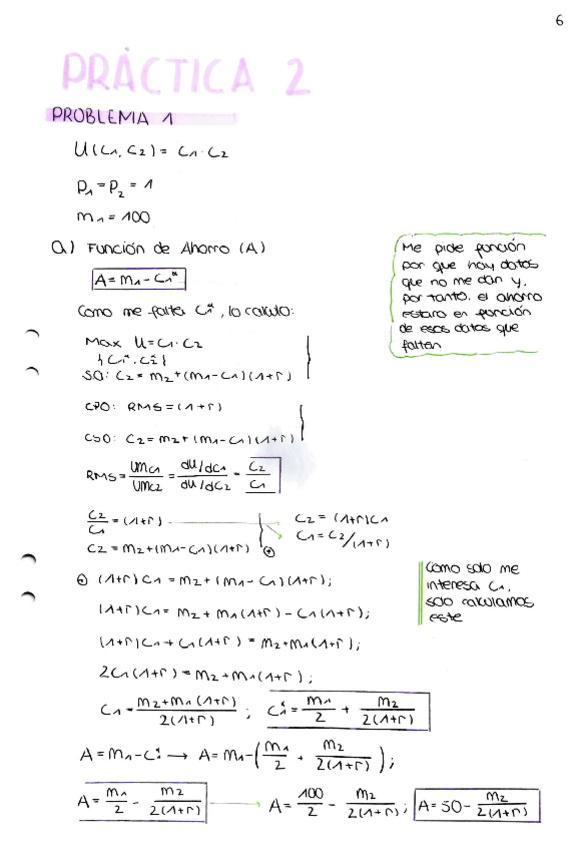 6
PRÁCTICA 2
PROBLEMA 1
U(C₁, C₂) = C₁·C₂
P₁ = P₂ = 1
m₁ = 100
a) Función de Ahorro (A)
A = m₁ - C₁*
Como me falta C₁*, lo calculo:
Me pide función
por que hay datos
que no me dan y,
por tanto, el ahorro
estara en función
de esos datos que
faltan
Max U = C₁·C₂
{C₁*, C₂*}
SO: C₂ = m₂ + (m₁ - C₁)(1+r)
CPO: RMS = (1+r)
CSO: C₂ = m₂ + (m₁ - C₁)(1+r)
RMS = UMC₁/UMC₂ = dU/dC₁ / dU/dC₂ = C₂/C₁
C₂/C₁ = (1+r) C₂ = (1+r)C₁
C₁ = C₂/(1+r)
C₂ = m₂ + (m₁ - C₁)(1+r)
(1+r)C₁ = m₂ + (m₁ - C₁)(1+r);
Como solo me
interesa C₁,
solo calculamos
este
(1+r)C₁ = m₂ + m₁(1+r) - C₁(1+r);
(1+r)C₁ + C₁(1+r) = m₂ + m₁(1+r);
2C₁(1+r) = m₂ + m₁(1+r);
C₁ = m₂ + m₁(1+r) / 2(1+r) ; C₁* = m₁/2 + m₂/2(1+r)
A = m₁ - C₁* → A = m₁ - (m₁/2 + m₂/2(1+r));
A = m₁/2 - m₂/2(1+r) → A = 100/2 - m₂/2(1+r); A = 50 - m₂/2(1+r)